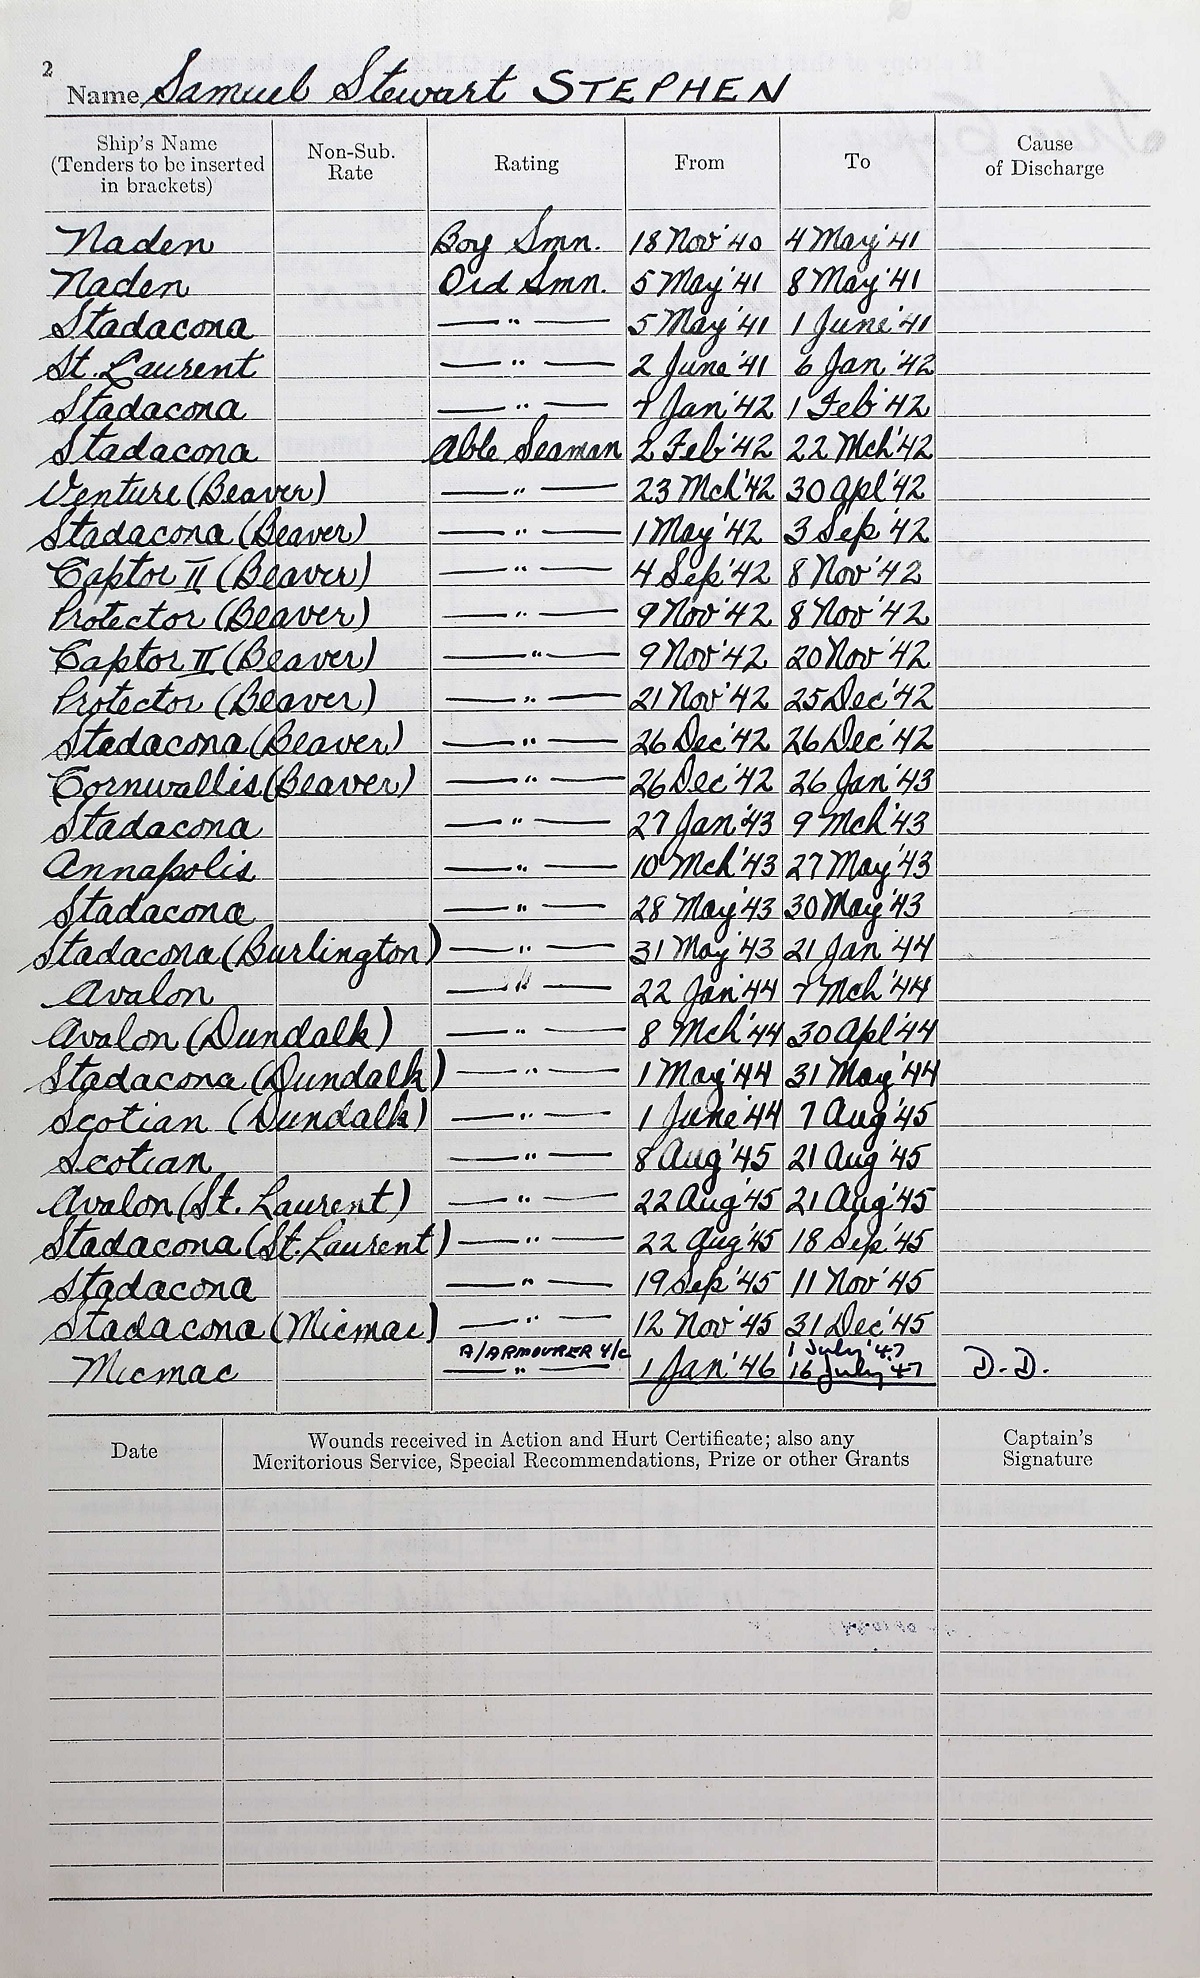 2
Name Samuel Stewart STEPHEN
Ship's Name (Tenders to be inserted in brackets) Non-Sub. Rate Rating From To Cause of Discharge
Naden Boy Smn. 18 Nov '40 4 May '41
Naden Ord Smn. 5 May '41 8 May '41
Stadacona — " — 5 May '41 1 June '41
St. Laurent — " — 2 June '41 6 Jan '42
Stadacona — " — 7 Jan '42 1 Feb '42
Stadacona Able Seaman 2 Feb '42 22 Mch '42
Venture (Beaver) — " — 23 Mch '42 30 Apl '42
Stadacona (Beaver) — " — 1 May '42 3 Sep '42
Captor II (Beaver) — " — 4 Sep '42 8 Nov '42
Protector (Beaver) — " — 9 Nov '42 8 Nov '42
Captor II (Beaver) — " — 9 Nov '42 20 Nov '42
Protector (Beaver) — " — 21 Nov '42 25 Dec '42
Stadacona (Beaver) — " — 26 Dec '42 26 Dec '42
Cornwallis (Beaver) — " — 26 Dec '42 26 Jan '43
Stadacona — " — 27 Jan '43 9 Mch '43
Annapolis — " — 10 Mch '43 27 May '43
Stadacona — " — 28 May '43 30 May '43
Stadacona (Burlington) — " — 31 May '43 21 Jan '44
Avalon — " — 22 Jan '44 7 Mch '44
Avalon (Dundalk) — " — 8 Mch '44 30 Apl '44
Stadacona (Dundalk) — " — 1 May '44 31 May '44
Scotian (Dundalk) — " — 1 June '44 7 Aug '45
Scotian — " — 8 Aug '45 21 Aug '45
Avalon (St. Laurent) — " — 22 Aug '45 21 Aug '45
Stadacona (St. Laurent) — " — 22 Aug '45 18 Sep '45
Stadacona — " — 19 Sep '45 11 Nov '45
Stadacona (Micmac) — " — 12 Nov '45 31 Dec '45
A/ARMOURER 4/c 1 July '47
Micmac — " — 1 Jan '46 16 July '47 D.D.
Date Wounds received in Action and Hurt Certificate; also any Meritorious Service, Special Recommendations, Prize or other Grants Captain's Signature